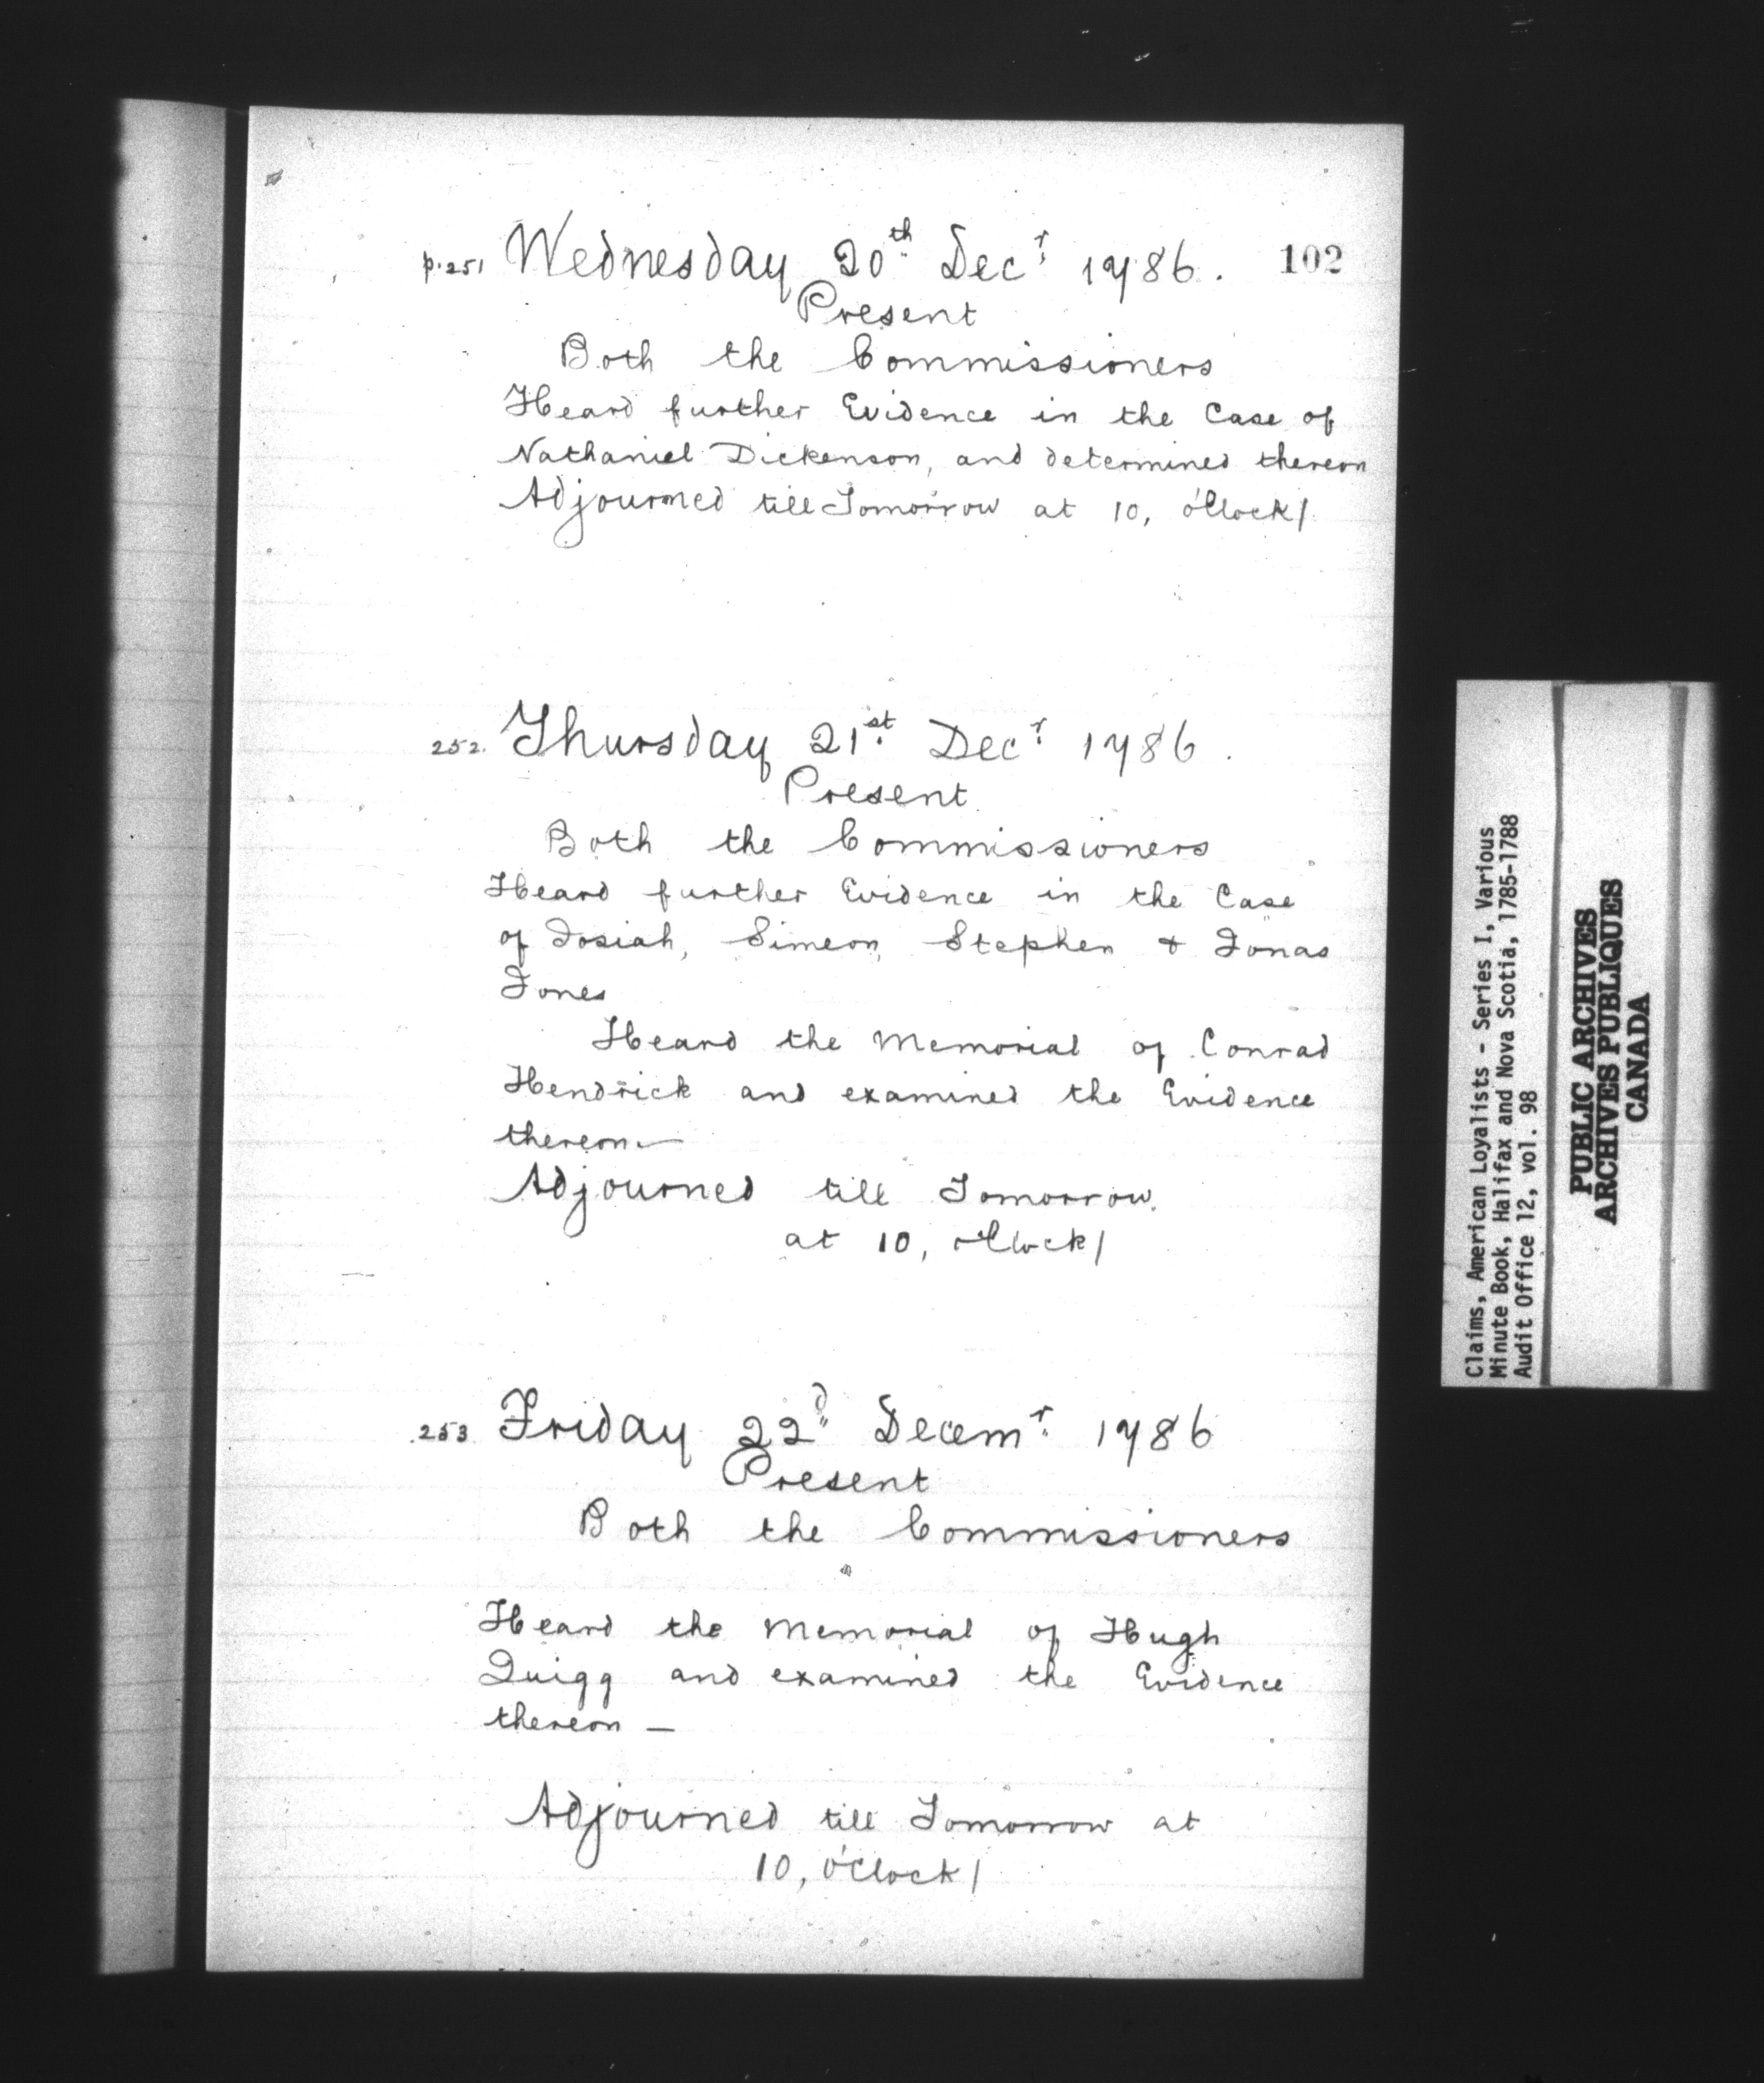 p. 251 Wednesday 20th Decr 1786. 102
Present
Both the Commissioners
Heard further Evidence in the Case of
Nathaniel Dickenson, and determined thereon
Adjourned till Tomorrow at 10, o'Clock/
252. Thursday 21st Decr 1786.
Present
Both the Commissioners
Heard further Evidence in the Case
of Josiah, Simeon, Stephen & Jonas
Jones
Heard the Memorial of Conrad
Hendrick and examined the Evidence
thereon.—
Adjourned till Tomorrow.
at 10, o'Clock/
253 Friday 22d Decemr 1786
Present
Both the Commissioners
Heard the Memorial of Hugh
Quigg and examined the Evidence
thereon —
Adjourned till Tomorrow at
10, o'Clock/
Claims, American Loyalists - Series I, Various
Minute Book, Halifax and Nova Scotia, 1785-1788
Audit Office 12, vol. 98
PUBLIC ARCHIVES
ARCHIVES PUBLIQUES
CANADA